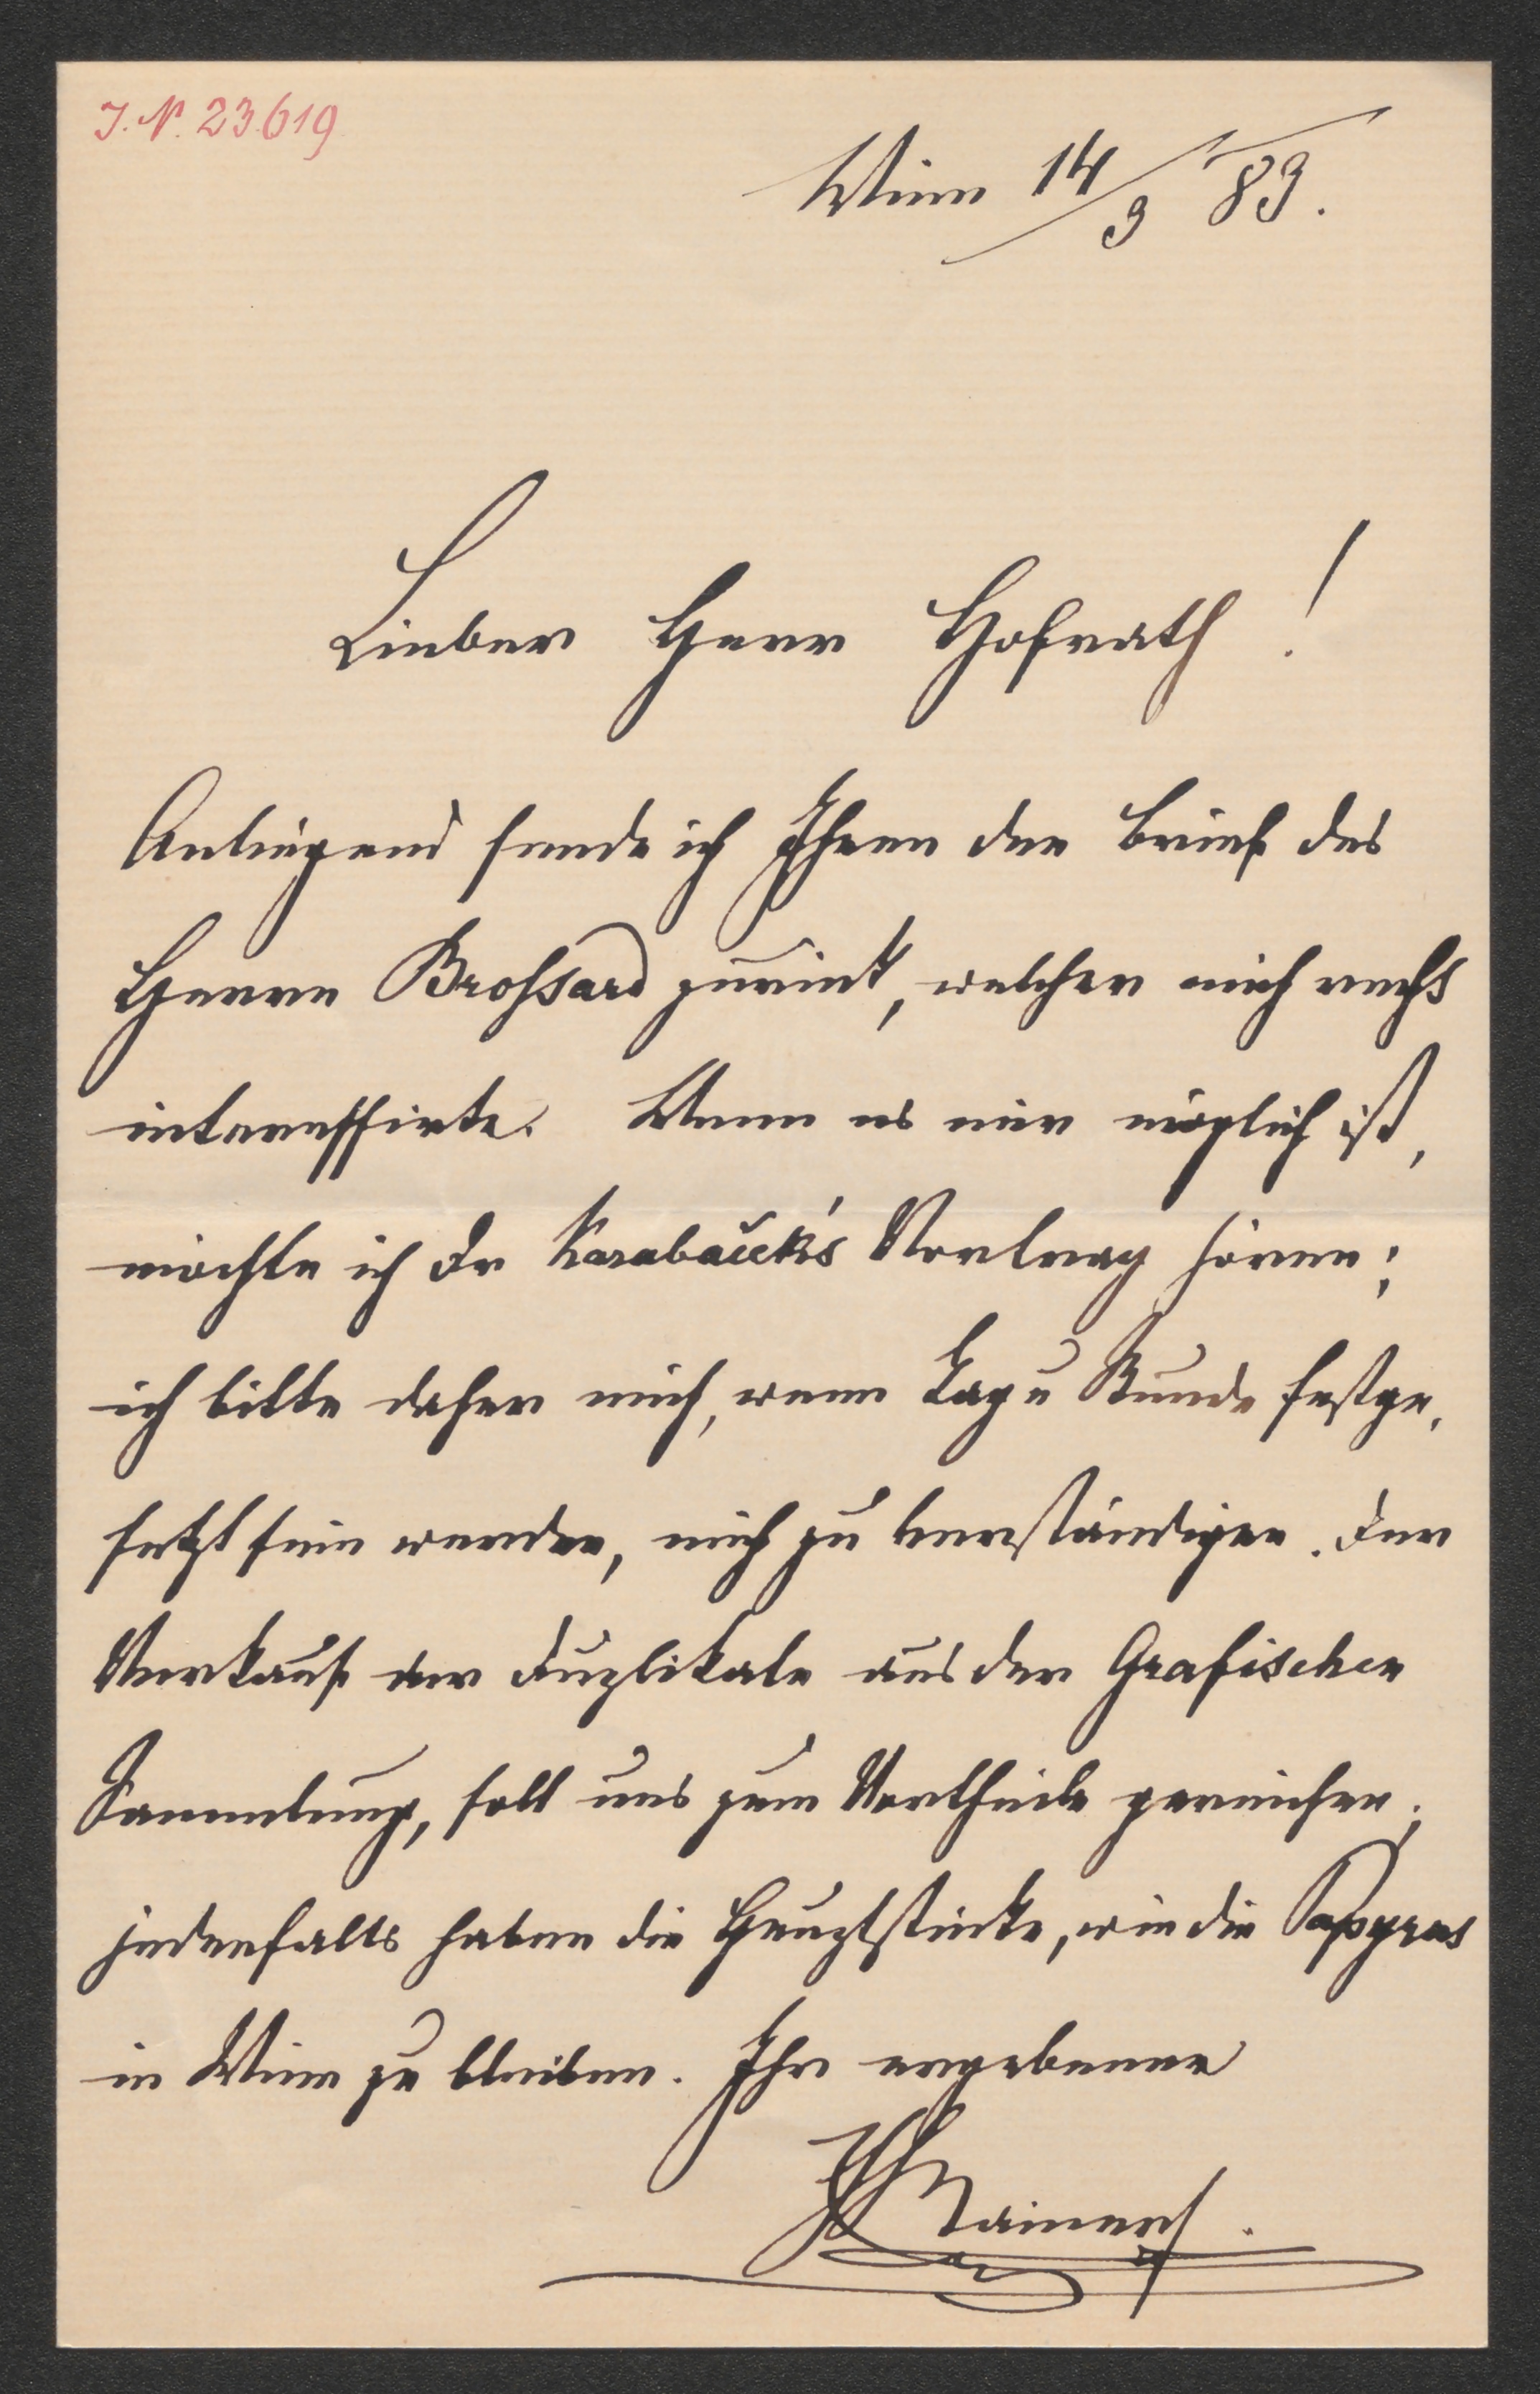 J. N. 23.619
Wien 14/3 83.
Lieber Herr Hofrath!
Anliegend sende ich Ihnen den Brief des
Herrn Brossard zurück, welcher mich rechts
interessirte. Wenn es mir möglich ist,
möchte ich Dr Karabaček's Vortrag hören;
ich bitte daher mich, wenn Tag u Stunde festge,
setzt sein werden, mich zu verständigen. Der
Verkauf der Duplikate aus der Grafischen
Sammlung, soll uns zum Vortheile gereichen;
jedenfalls haben die Hauptstücke, wie die Papyrus
in Wien zu bleiben. Ihr ergebener
EHRainer.